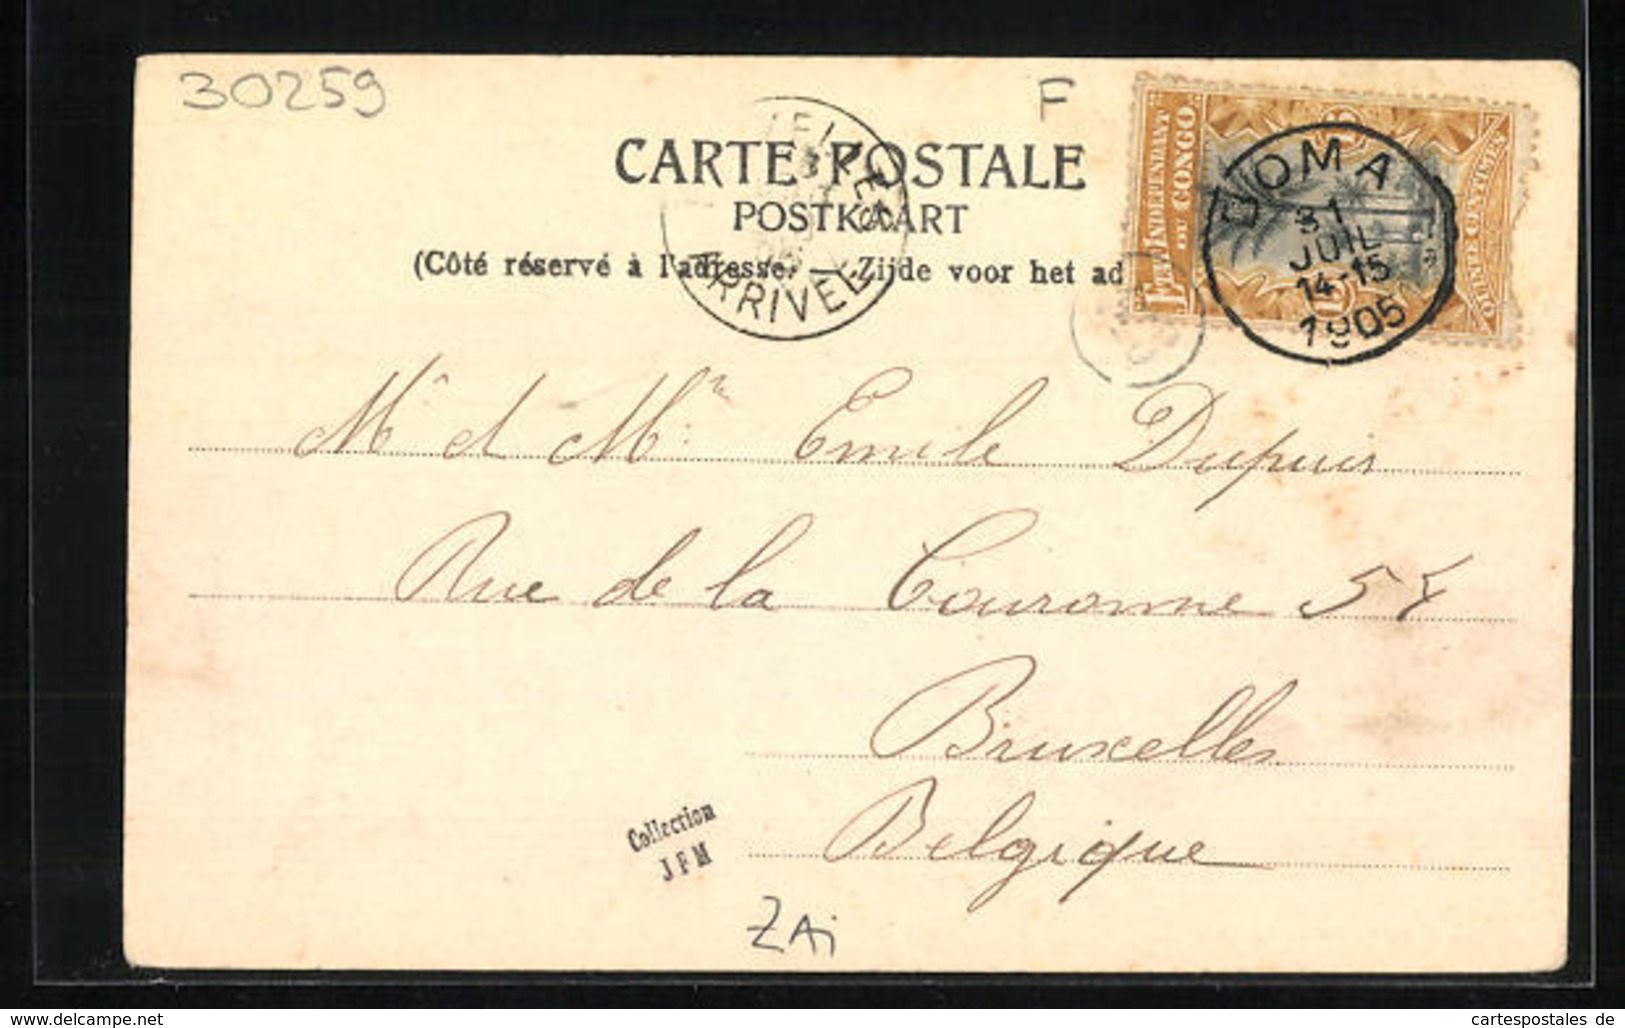 30259
F
CARTE POSTALE
POSTKAART
(Côté réservé à l'adresse. — Zijde voor het ad
ETAT INDEPENDANT
DU CONGO
15
QUINZE CENTIMES
BOMA
31
JUIL
14-15
1905
ARRIVEE
Mr et Mm Emile Dupuis
Rue de la Couronne
Bruxelles
Belgique
Collection
JFM
ZAi
www.delcampe.net
cartespostales de